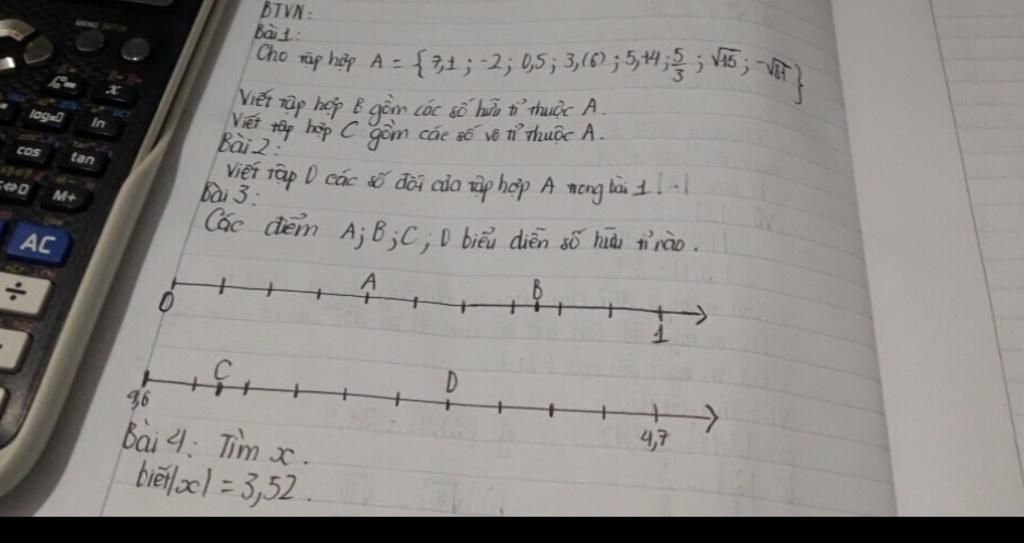 BTVN:
Bài 1:
Cho tập hợp A = { 7,1 ; -2 ; 0,5 ; 3,(6) ; 5,14 ; 5/3 ; √15 ; -√81 }
Viết tập hợp B gồm các số hữu tỉ thuộc A.
Viết tập hợp C gồm các số vô tỉ thuộc A.
Bài 2:
Viết tập D các số đối của tập hợp A trong bài 1
Bài 3:
Các điểm A; B; C; D biểu diễn số hữu tỉ nào.
A B
0 1
C D
4,7
Bài 4: Tìm x.
biết |x| = 3,52.
MENU SETUP
x
log ln
cos tan
S⇔D M+
AC
÷